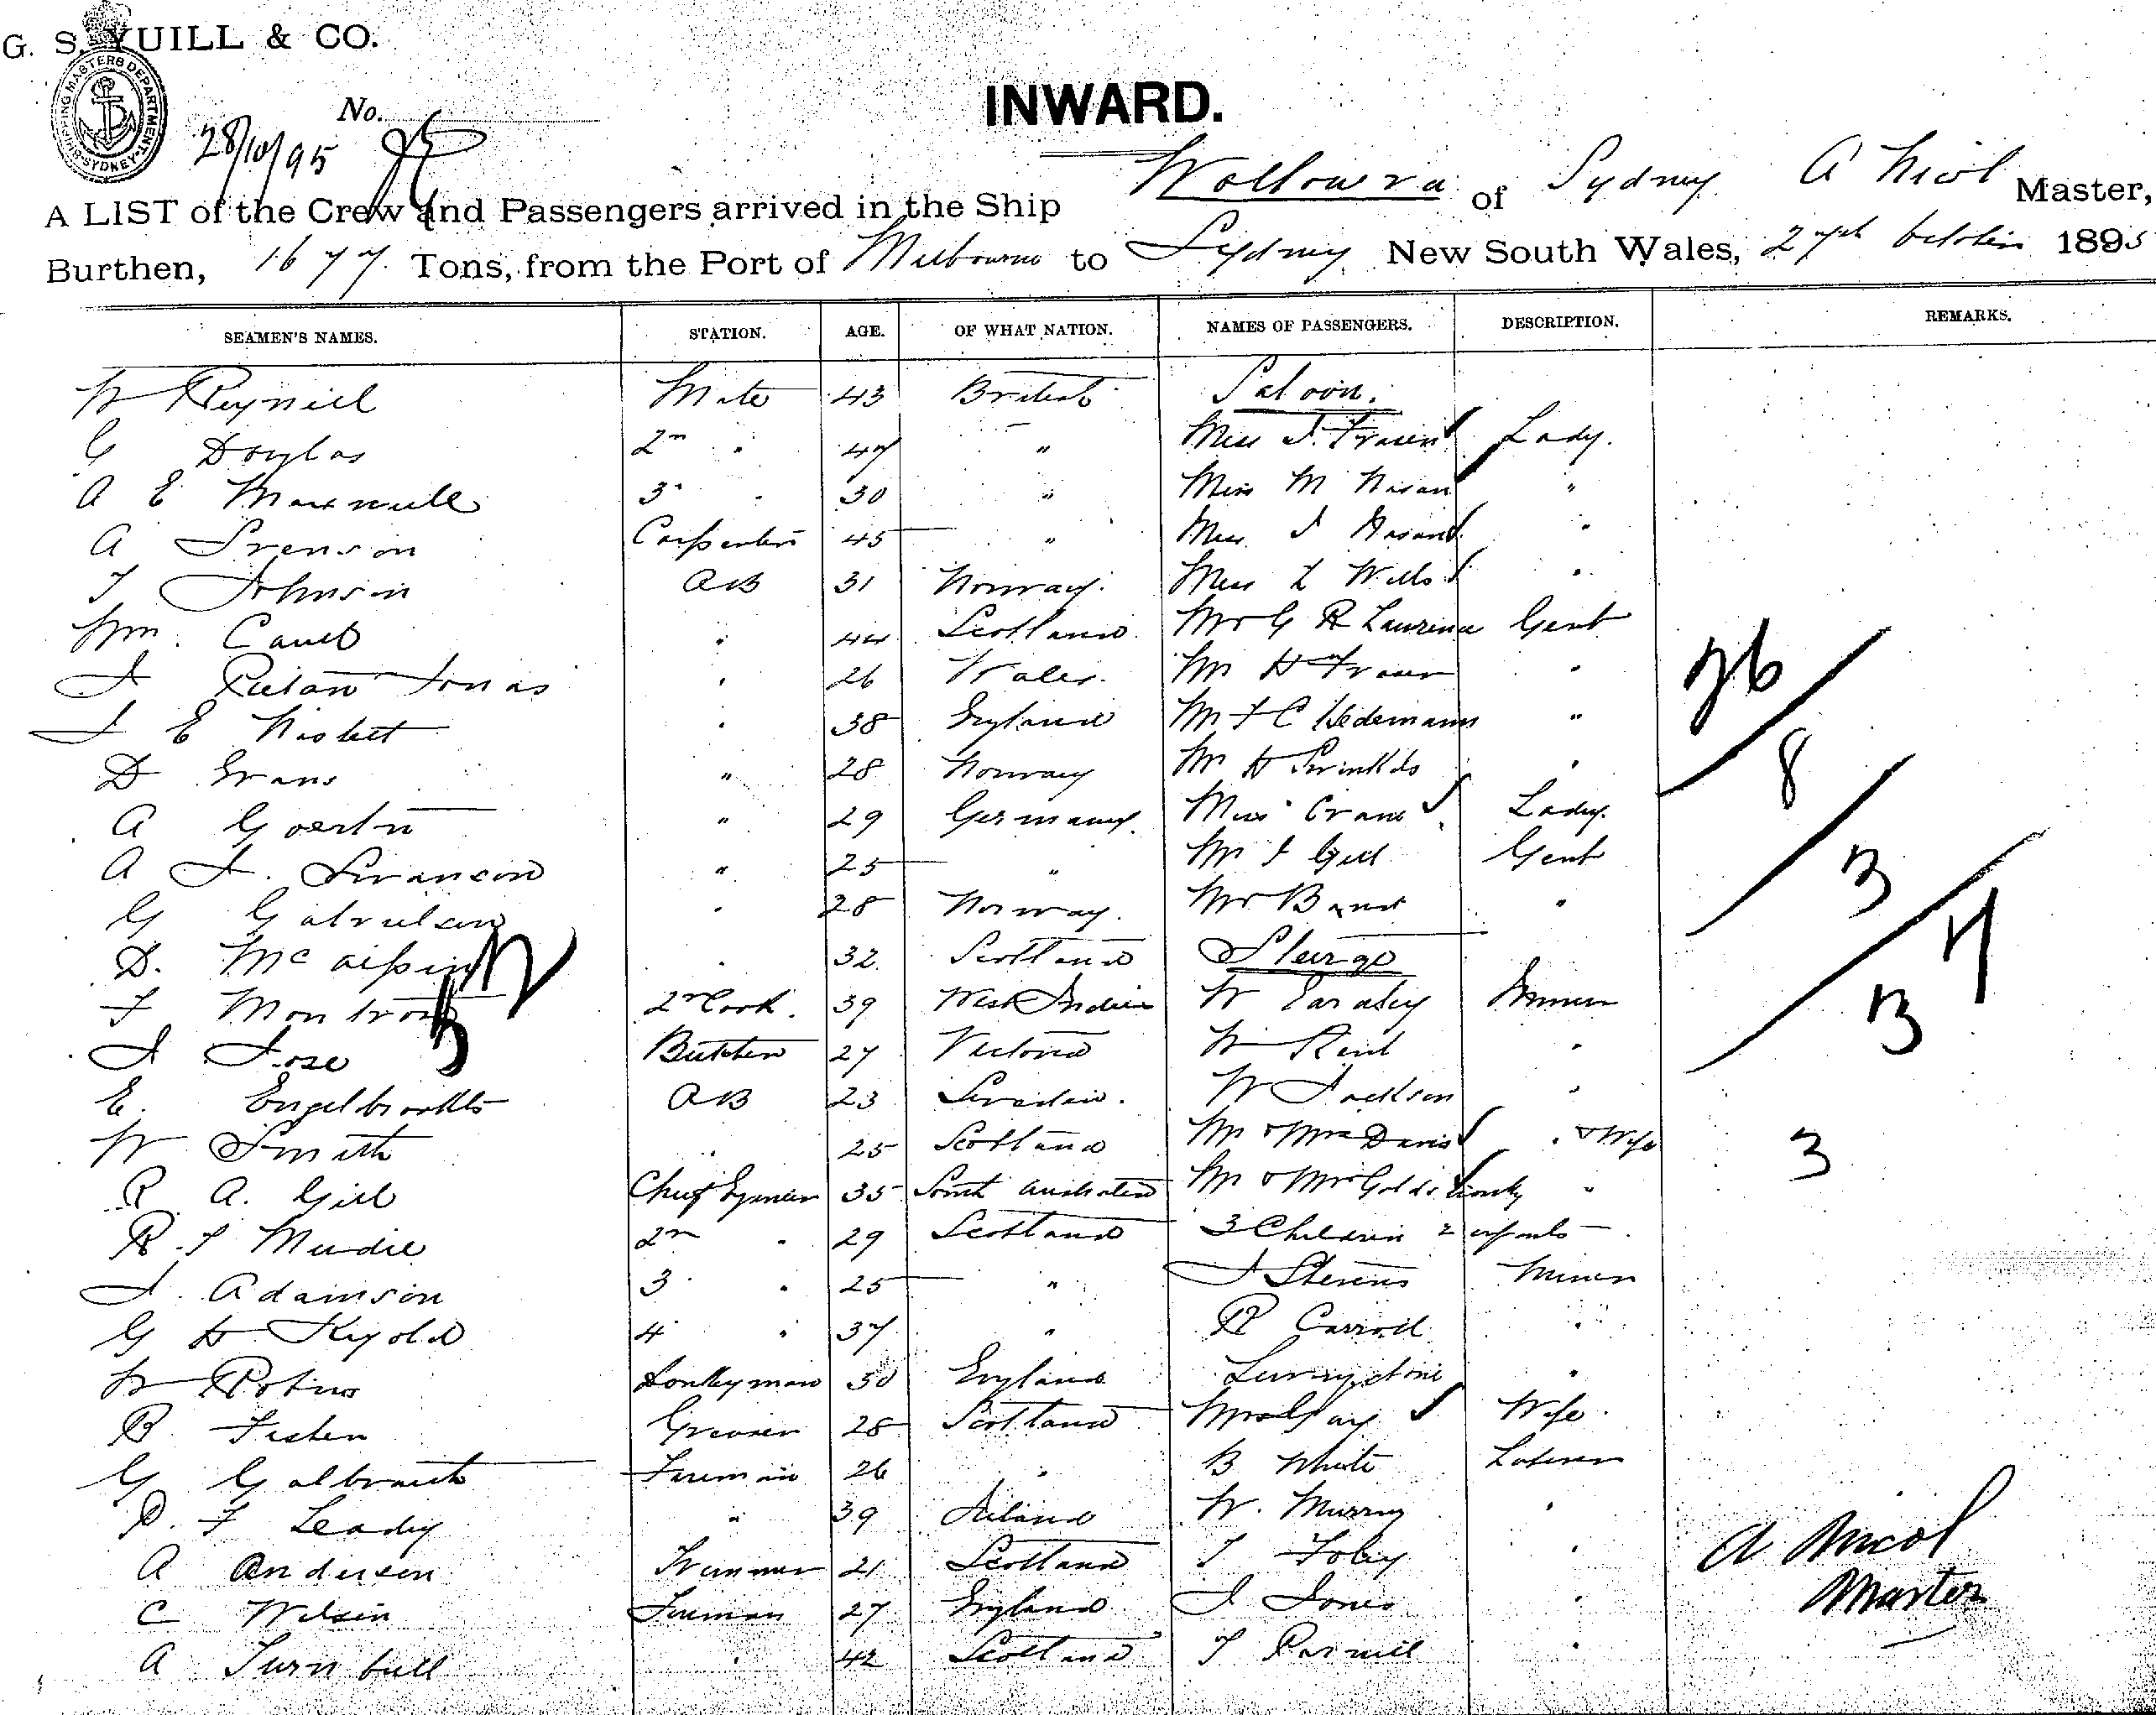 G. S. YUILL & CO.
SHIPPING MASTERS DEPARTMENT SYDNEY
No.
28/10/95
INWARD.
A LIST of the Crew and Passengers arrived in the Ship Wollowra of Sydney A Nicol Master,
Burthen, 1677 Tons, from the Port of Melbourne to Sydney New South Wales, 27th October 1895
SEAMEN'S NAMES. STATION. AGE. OF WHAT NATION. NAMES OF PASSENGERS. DESCRIPTION. REMARKS.
W Mate 43 British Saloon.
G Douglas 2nd " 47 " Miss J. Fraser Lady.
A E Maxwell 3 " 30 " Miss M "
A Svenson Carpenter 45 " Miss J "
T Johnson AB 31 Norway. Miss L Wills "
Wm. " 44 Scotland Mr G R Laurence Gent
J Jonas " 26 Wales. Mr H Fraser "
J E Nisbet " 38 England Mr F C Hedemann "
D Evans " 28 Norway Mr H "
A " 29 Germany. Miss Crane Lady.
A J. Swanson " 25 " Mr J Gill Gent
G " 28 Norway. Mr "
D. McAlpin " 32 Scotland Steerage
F Montrose 2nd Cook. 39 West Indies W Miner
J Jose Butcher 27 Victoria W Reid "
E. AB 23 Sweden. W Jackson "
W Smith " 25 Scotland Mr & Mrs Davis " & Wife
R A. Gill Chief Engineer 35 South Australia Mr & Mrs "
R. J Mudie 2nd " 29 Scotland 3 Children 2 infants
J. Adamson 3 " 25 " J Stevens Miner
G H 4 " 37 " R Carroll "
W Donkeyman 50 England Livingstone "
B Fisher Greaser 28 Scotland Mrs Gay Wife.
G Galbraith Fireman 26 " B White Laborer
D. F Leady " 39 Ireland W. Murray "
A Anderson Trimmer 21 Scotland T Foley "
C Wilson Fireman 27 England J Jones "
A Turnbull " 42 Scotland T Parnell "
8
3
3
A Nicol
Master